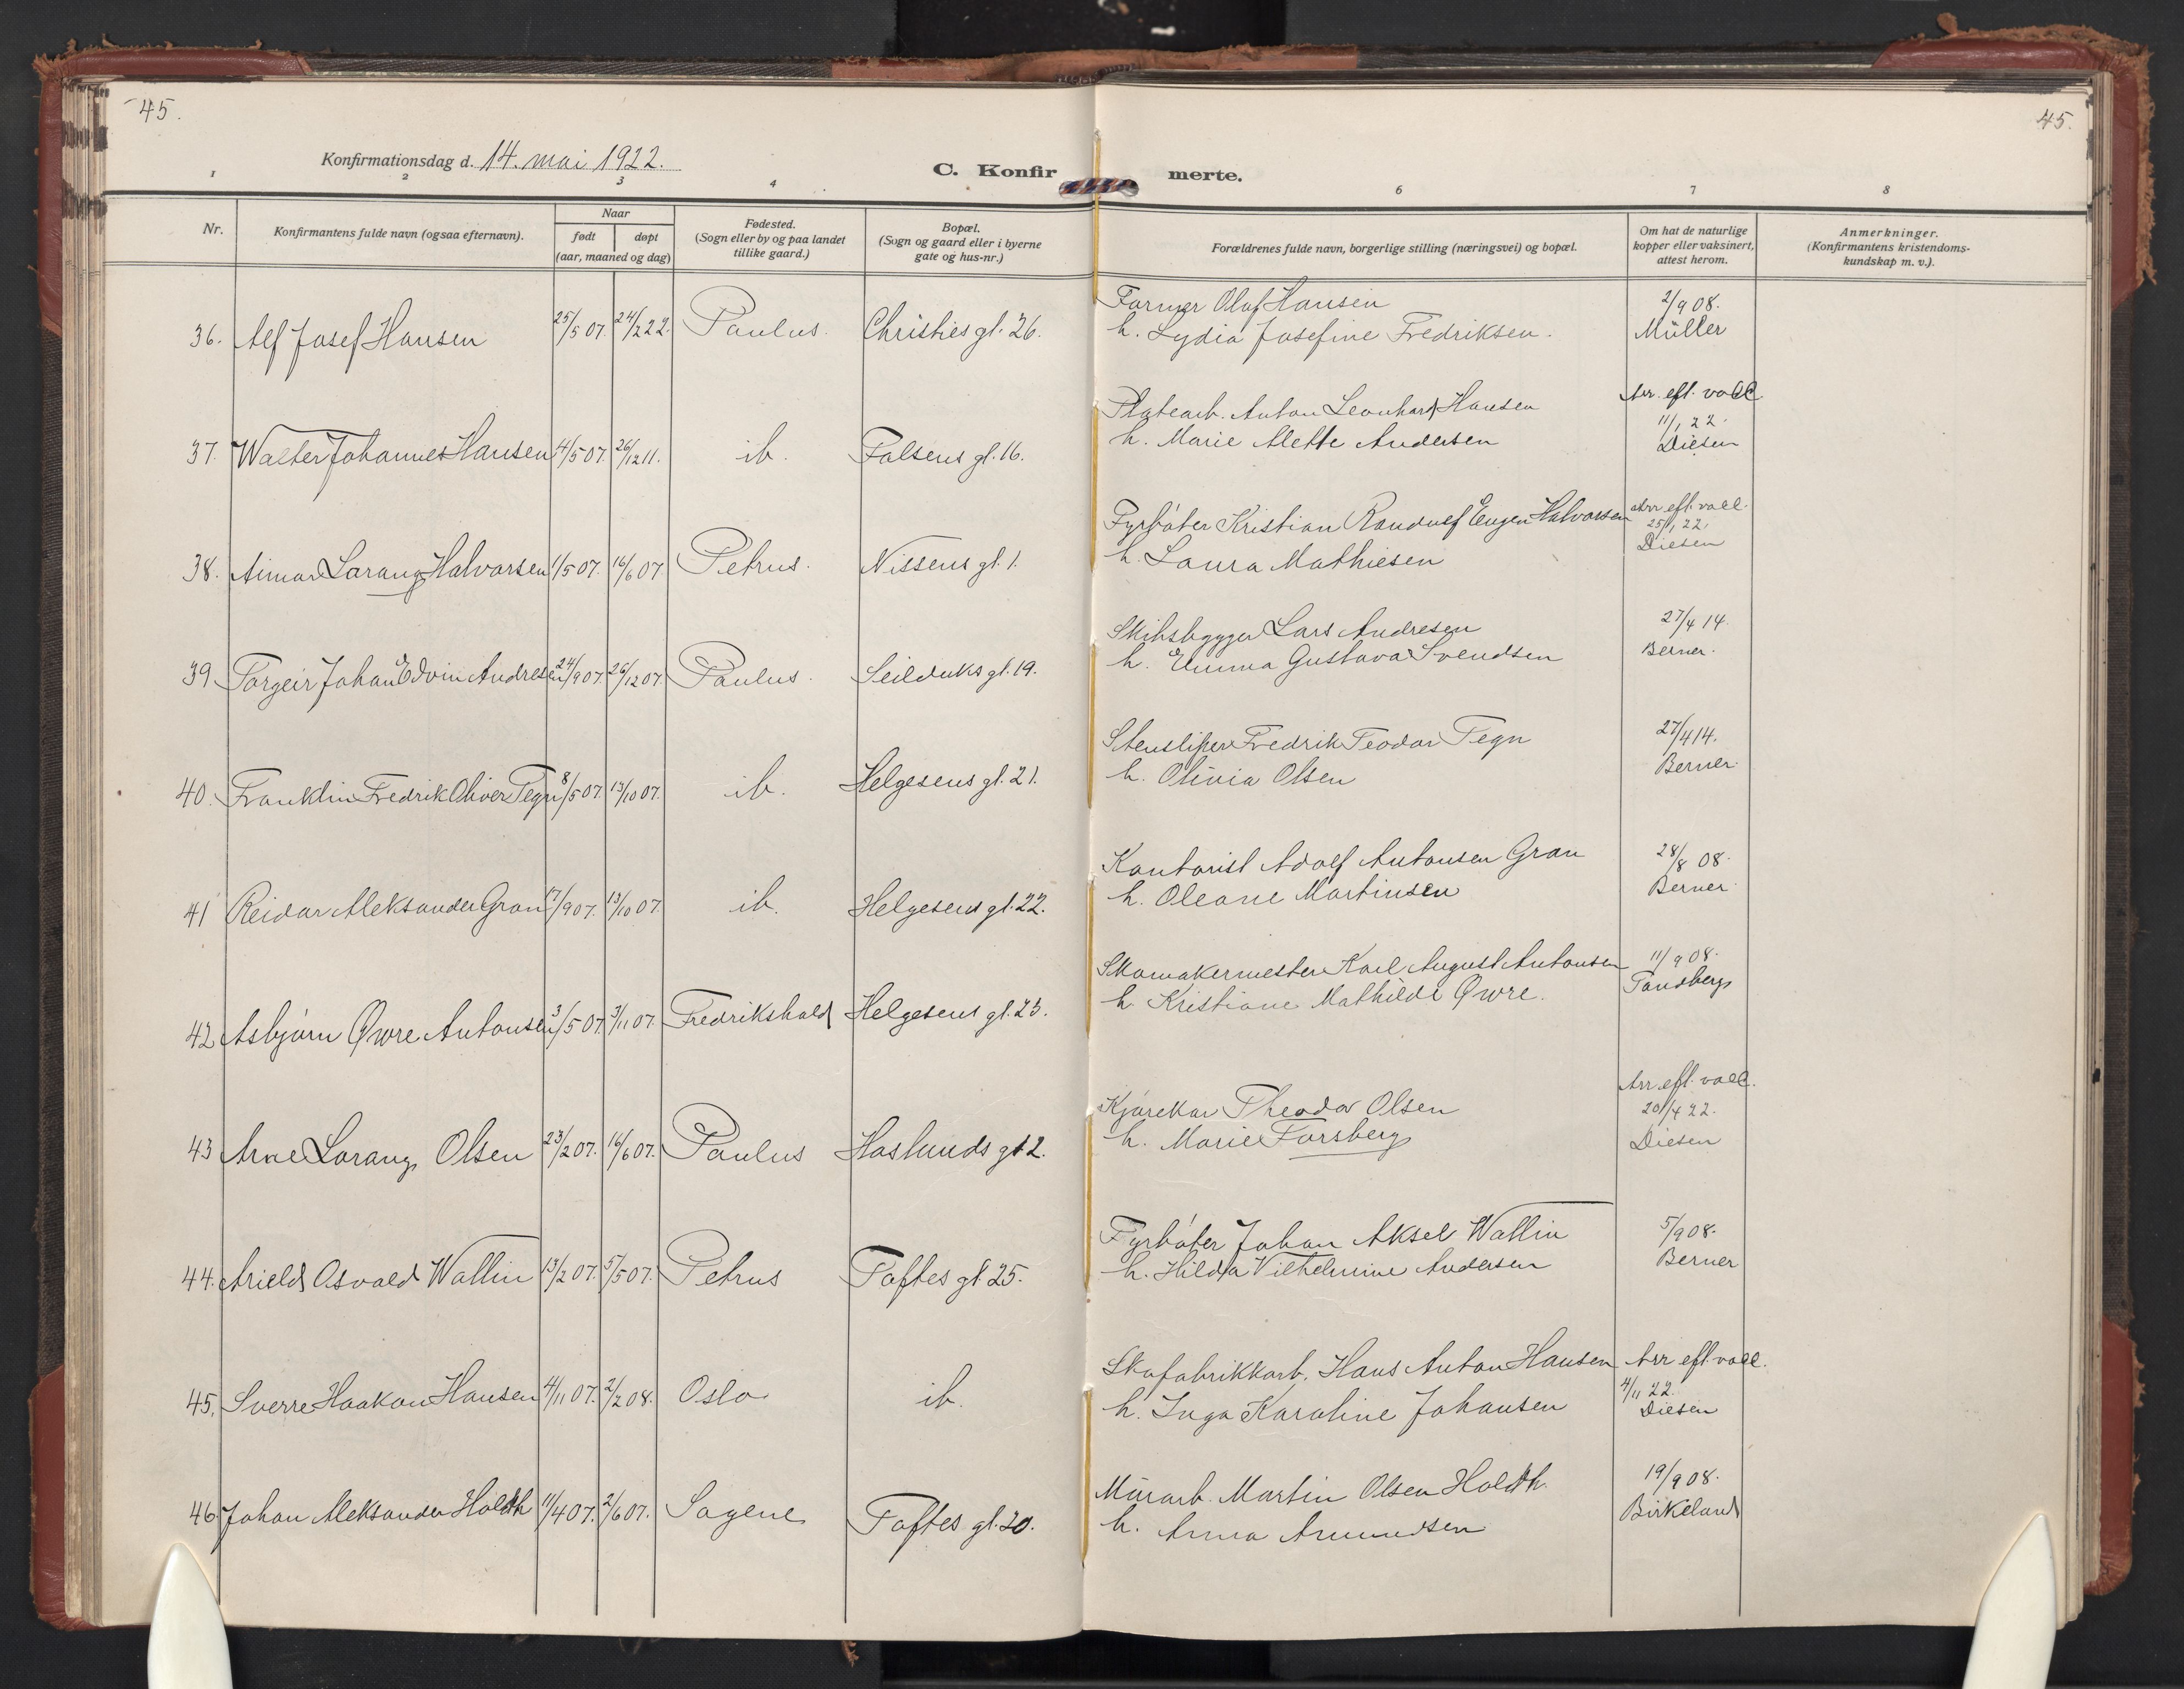 45.
45.
Konfirmationsdag d. 14. mai 1922.
C. Konfirmerte.
1 2 3 4 6 7 8
Nr.
Konfirmantens fulde navn (ogsaa efternavn).
Naar
født døpt
(aar, maaned og dag)
Fødested.
(Sogn eller by og paa landet
tillike gaard.)
Bopæl.
(Sogn og gaard eller i byerne
gate og hus-nr.)
Forældrenes fulde navn, borgerlige stilling (næringsvei) og bopæl.
Om hat de naturlige
kopper eller vaksinert,
attest herom.
Anmerkninger.
(Konfirmantens kristendoms-
kundskap m. v.).
36. Alf Josef Hansen 25/5 07. 24/2 22. Paulus. Christies gt. 26.
Former Olaf Hansen
h. Lydia Josefine Fredriksen.
2/9 08.
Müller
37. Walter Johannes Hansen 4/5 07. 26/12 11. ib. Falsens gt. 16.
Platearb. Anton Leonhard Hansen
h. Marie Alette Andersen
Arr. eft. vacc.
11/1 22.
Diesen
38. Aimar Lorang Halvorsen 1/5 07. 16/6 07 Petrus. Nissens gt. 1.
Fyrbøter Kristian Randulf Eugen Halvorsen
h. Laura Mathiesen
Arr eft. vacc.
25/1 22.
Diesen
39 Torgeir Johan Edvin Andresen 24/9 07. 26/12 07. Paulus. Seilduks gt. 19.
Skibsbygger Lars Andresen
h. Emma Gustava Svendsen
27/4 14.
Berner.
40. Franklin Fredrik Oliver Tegn 8/5 07. 13/10 07. ib. Helgesens gt. 21.
Stensliper Fredrik Teodor Tegn
h. Olivia Olsen
27/4 14.
Berner.
41 Reidar Aleksander Gran 17/9 07. 13/10 07. ib. Helgesens gt. 22.
Kontorist Adolf Antonsen Gran
h. Oleane Martinsen
28/8 08.
Berner.
42 Asbjørn Øwre Antonsen 3/5 07. 3/11 07. Fredrikshald Helgesens gt. 23.
Skomakermester Karl August Antonsen
h. Kristiane Mathilde Øwre.
11/9 08.
Tandberg
43 Arne Lorang Olsen 23/2 07. 16/6 07. Paulus Haslunds gt 2.
Kjørekar Theodor Olsen
h. Marie Forsberg
Arr. eft. vacc.
20/4 22.
Diesen
44. Arield Osvald Wallin 13/2 07. 5/5 07. Petrus Toftes gt. 25.
Fyrbøter Johan Aksel Wallin
h. Hilda Vilhelmine Andersen
5/9 08.
Berner
45. Sverre Haakon Hansen 4/11 07. 2/2 08. Oslo ib.
Skofabrikkarb. Hans Anton Hansen
h. Inga Karoline Johansen
Arr eft. vacc.
4/11 22.
Diesen
46. Johan Aleksander Holdth 11/4 07. 2/6 07. Sagene Toftes gt. 20.
Murarb. Martin Olsen Holdth.
h. Anna Amundsen
19/9 08.
Birkeland